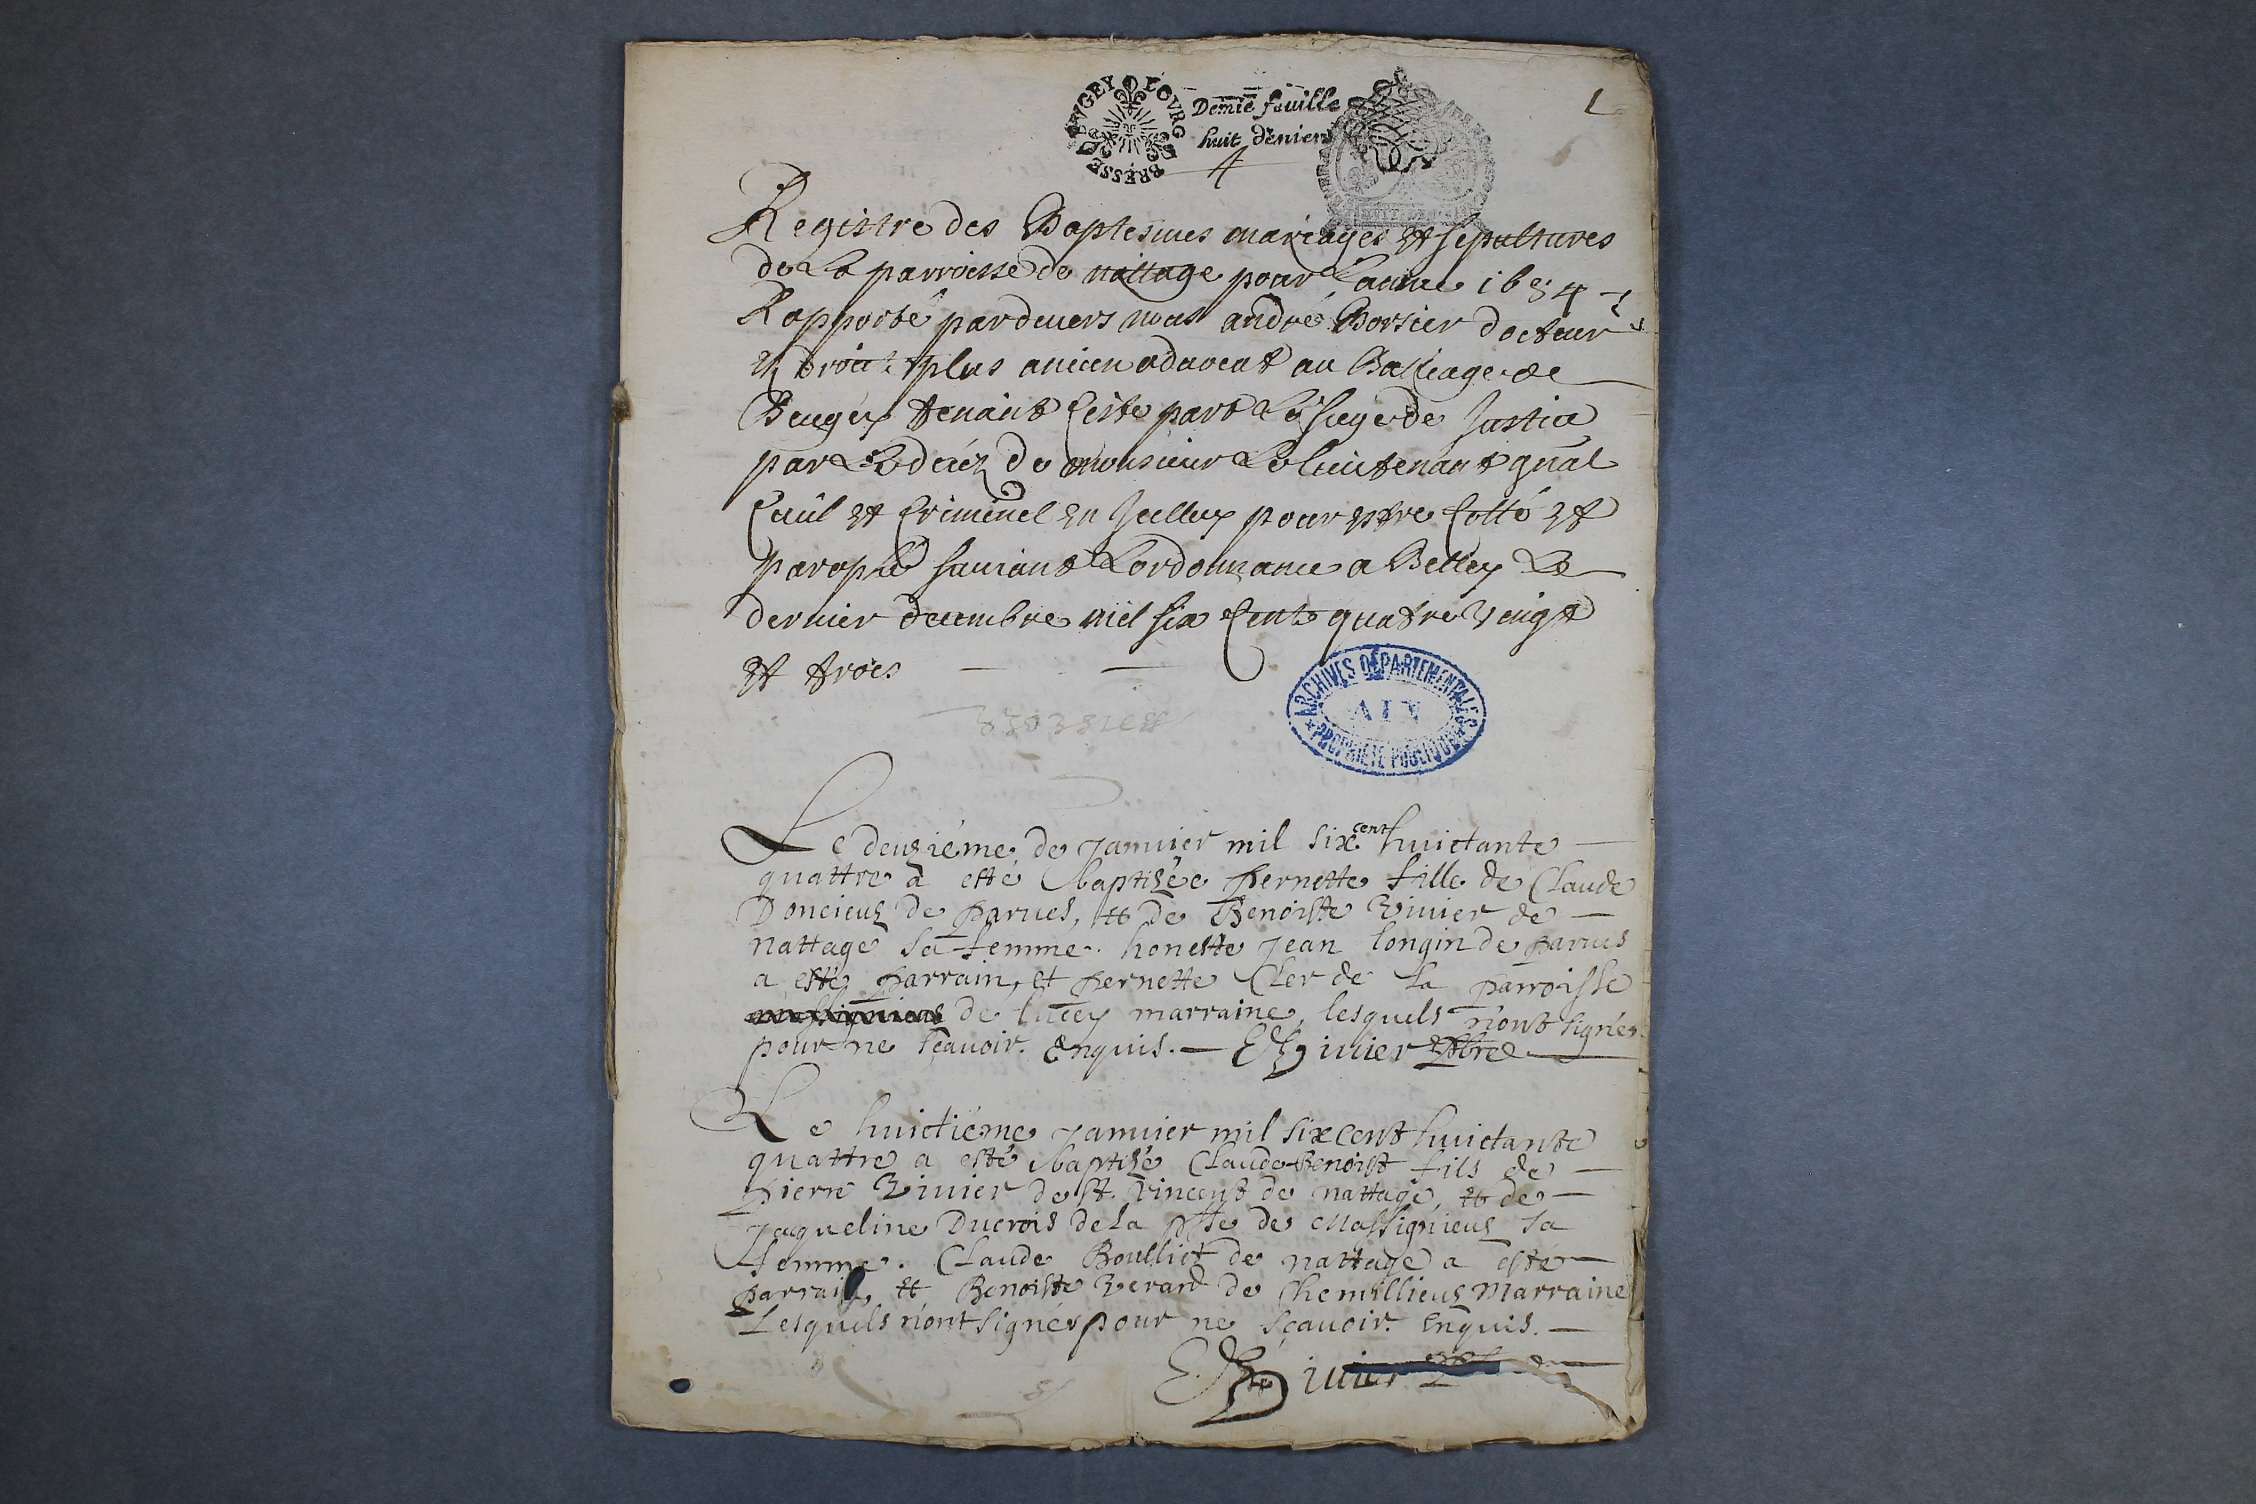 BVGEY BOVRG BRESSE
Demie feuille
huit deniers
1
4
Registre des Baptesmes mariages et sepultures
de La parroisse de nattage pour Lannee 1684
Rapporté pardevers nous andré Borsier docteur
en droit plus ancien advocat au Balliage de
Beugey tenant Ceste part Le siege de Justice
par Le deces de monsieur Le lieutenant gnal
Ciuil et Criminel en Icelluy pour estre Cotté et
paraphé suiuant Lordonnance a Belley Le
dernier decembre mil six Cents quatre vingt
et trois
ARCHIVES DÉPARTEMENTALES
AIN
PROPRIÉTÉ PUBLIQUE
Le deuziéme de Januier mil six cent huictante
quattre a esté baptizée pernette fille de Claude
Doncieuz de parues, et de Benoiste Viuier de
nattage sa femme. honeste Jean longin de parues
a esté parrain, et pernette Cler de la parroisse
de lucey marraine, lesquels n'ont signés
pour ne sçauoir. Enquis. iuier
Le huictiéme Januier mil six cent huictante
quattre a esté baptizé Claude Benoist fils de
pierre Viuier de St. Vincent de nattage, et de
Jaqueline Ducrois de la psse de Massignieuz sa
femme. Claude Boulliet de nattage a esté
parrain, et Benoiste Verard de Chemillieuz Marraine
Lesquels n'ont signés pour ne sçauoir. Enquis.
iuier